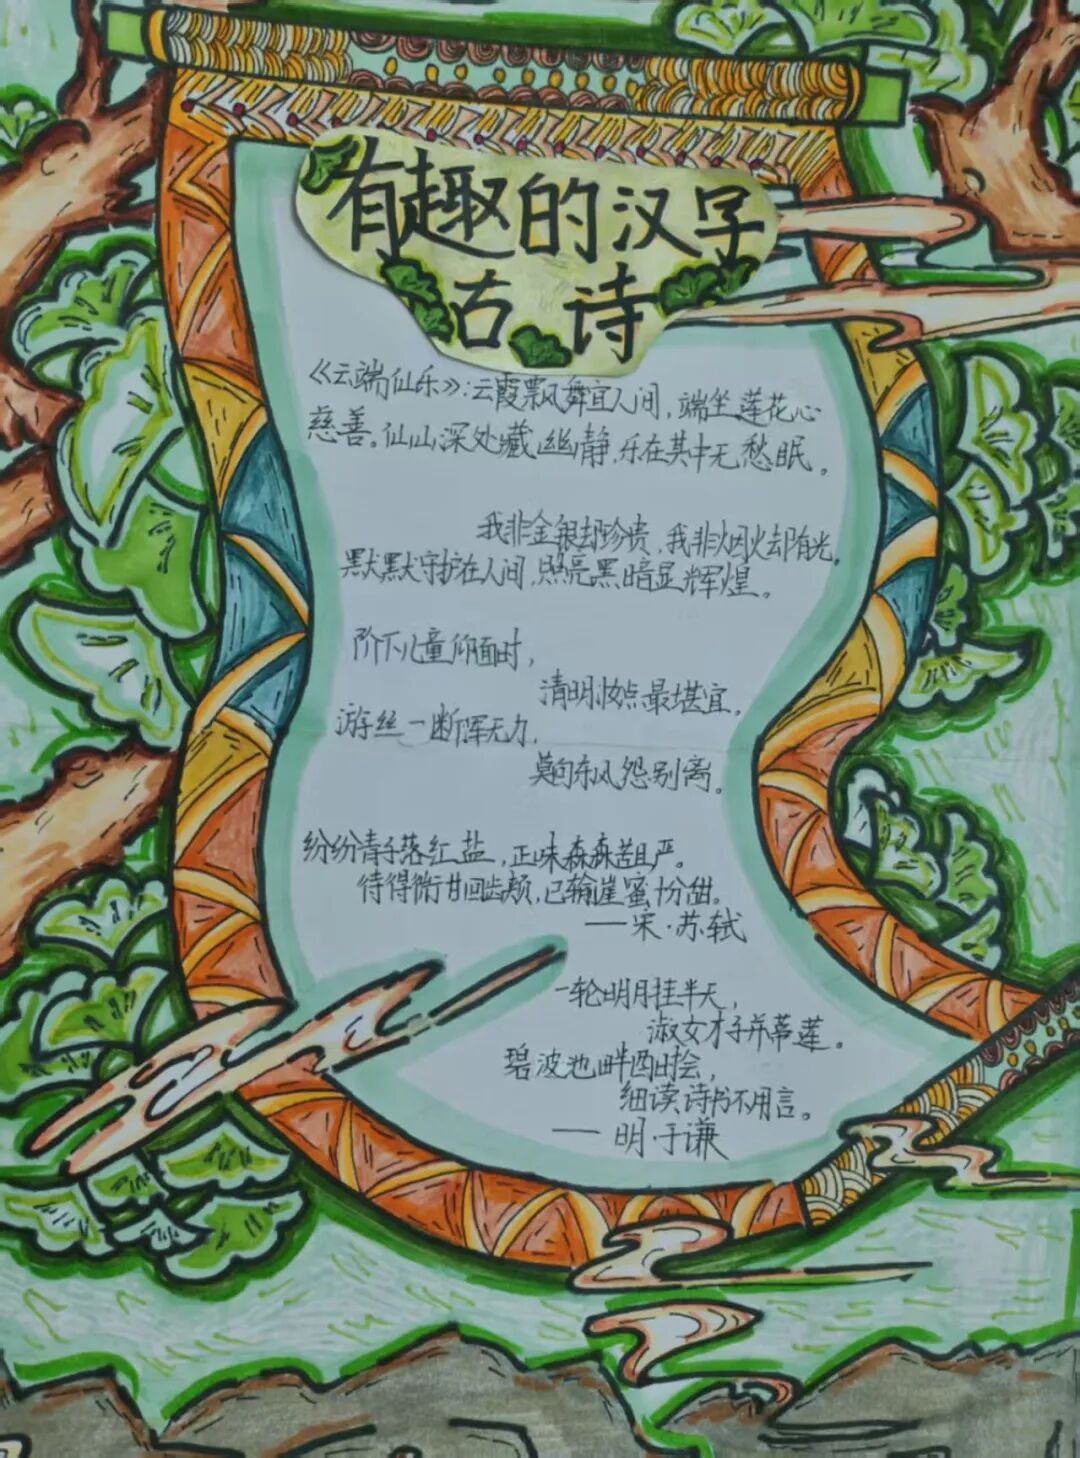 有趣的汉字
古诗
《云端仙乐》:云霞飘舞宜人间,端坐莲花心
慈善。仙山深处藏幽静,乐在其中无愁眠。
我非金银却珍贵,我非烟火却有光。
默默守护在人间,照亮黑暗显辉煌。
阶下儿童仰面时,
清明妆点最堪宜。
游丝一断浑无力,
莫向东风怨别离。
纷纷青子落红盐,正味森森苦且严。
待得微甘回齿颊,已输崖蜜十分甜。
——宋·苏轼
一轮明月挂半天,
淑女才子并蒂莲。
碧波池畔酉时会,
细读诗书不用言。
——明·于谦